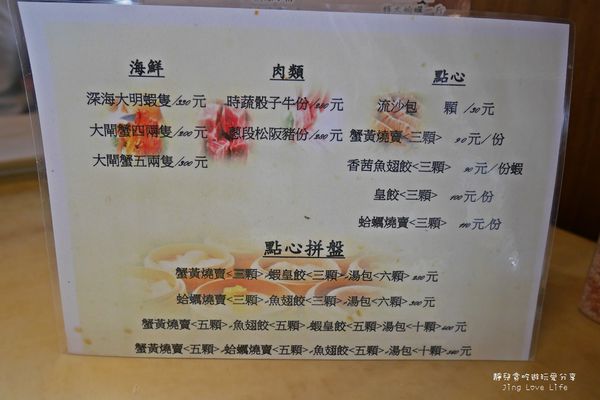 海鮮
深海大明蝦隻/220元
大閘蟹四兩隻/200元
大閘蟹五兩隻/300元
肉類
時蔬骰子牛份/200元
蔥段松阪豬份/200元
點心
流沙包 顆/30元
蟹黃燒賣<三顆> 90元/份
香茜魚翅餃<三顆> 90元/份蝦
皇餃<三顆> 100元/份
蛤蠣燒賣<三顆> 110元/份
點心拼盤
蟹黃燒賣<三顆>-蝦皇餃<三顆>-湯包<六顆>
蛤蠣燒賣<三顆>-魚翅餃<三顆>-湯包<六顆>300元
蟹黃燒賣<五顆>-魚翅餃<五顆>-蝦皇餃<五顆>湯包<十顆>
蟹黃燒賣<五顆>-蛤蠣燒賣<五顆>-魚翅餃<五顆>-湯包<十顆>
靜兒貪吃遊玩愛分享
Jing Love Life